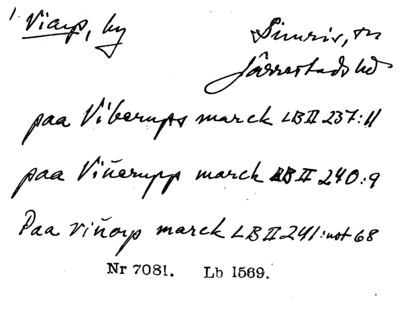 1. Viarp, by
Simris, sn
Järrestads hd
paa Viberups marck LB II 237:11
paa Viñerupp marck LB II 240:9
Paa viñorp marck LB II 241:not 68
Nr 7081. Lb 1569.